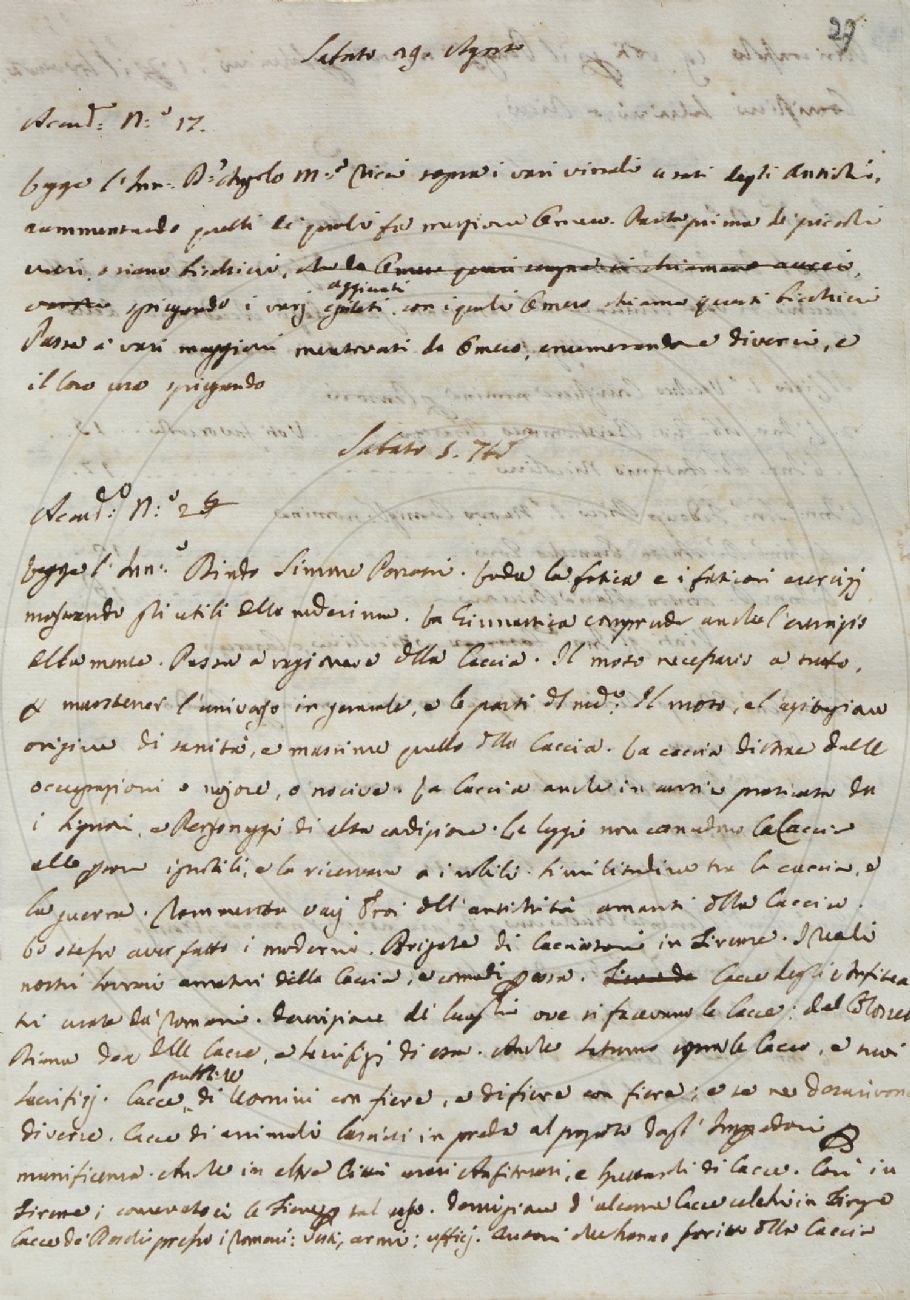 29
Sabato 29. Agosto
Accad.ª N.º 17.
Legge l'Inn.º B.r Angelo M.ª Ricci sopra i vari vinali usati dagli Antichi,
rammentando quelli de' quali fa menzione Omero. Parla prima de' piccoli
vasi, o siano bicchieri, che da Omero
spiegando i varj aggiunti epiteti, con i quali Omero chiama questi bicchieri
Passa a' vasi maggiori mentovati da Omero, enumerando e diversi, e
il loro uso spiegando
Sabato 5. 7bre
Accad.ª N.º 2
Legge l'Inn.º Bindo Simone Peruzzi. Loda la fatica e i faticosi esercizj
mostrando gli utili della medesima. La Ginnastica comprende anche l'esercizio
della mente. Passa a ragionare della Caccia. Il moto necessario a tutto,
per mantener l'universo in generale, e le parti del med.º Il moto, e l'agitazione
origine di sanità, e massime quello della Caccia. La caccia distrae dalle
occupazioni o nojose, o nocive. La Caccia anche in antico praticata da
i Signori, e Personaggi di alta condizione. Le leggi non concedono la Caccia
alle persone ignobili, e la riservano a i nobili. Similitudine tra la caccia, e
la guerra. Rammenta varj Eroi dell'antichità amanti della Caccia.
Lo stesso aver fatto i moderni. Brigate di Cacciatori in Firenze. I Reali
nostri Sovrani amatori della Caccia, e comodi per essa. Cacce degli Anfitea
tri usate da' Romani. Descrizione de' luoghi ove si facevano le Cacce: del Colosseo
Diana Dea delle Cacce, e Sacrifizj di essa. Anche Saturno sopra le Cacce, e suoi
Sacrifizj. Cacce pubbliche di Uomini con fiere, e di fiere con fiere; e se ne descrivono
diverse. Cacce di animali lasciati in preda al popolo dagl'Imperadori per
munificenza. Anche in altre Città erano Anfiteatri, e spettacoli di Cacce. Così in
Firenze; conservatoci le Fiere per tal uso. Descrizione d'alcune Cacce celebri in Firenze
Cacce de' Boschi presso i Romani: Vesti, armi; uffizj. Autori che hanno scritto della Caccia